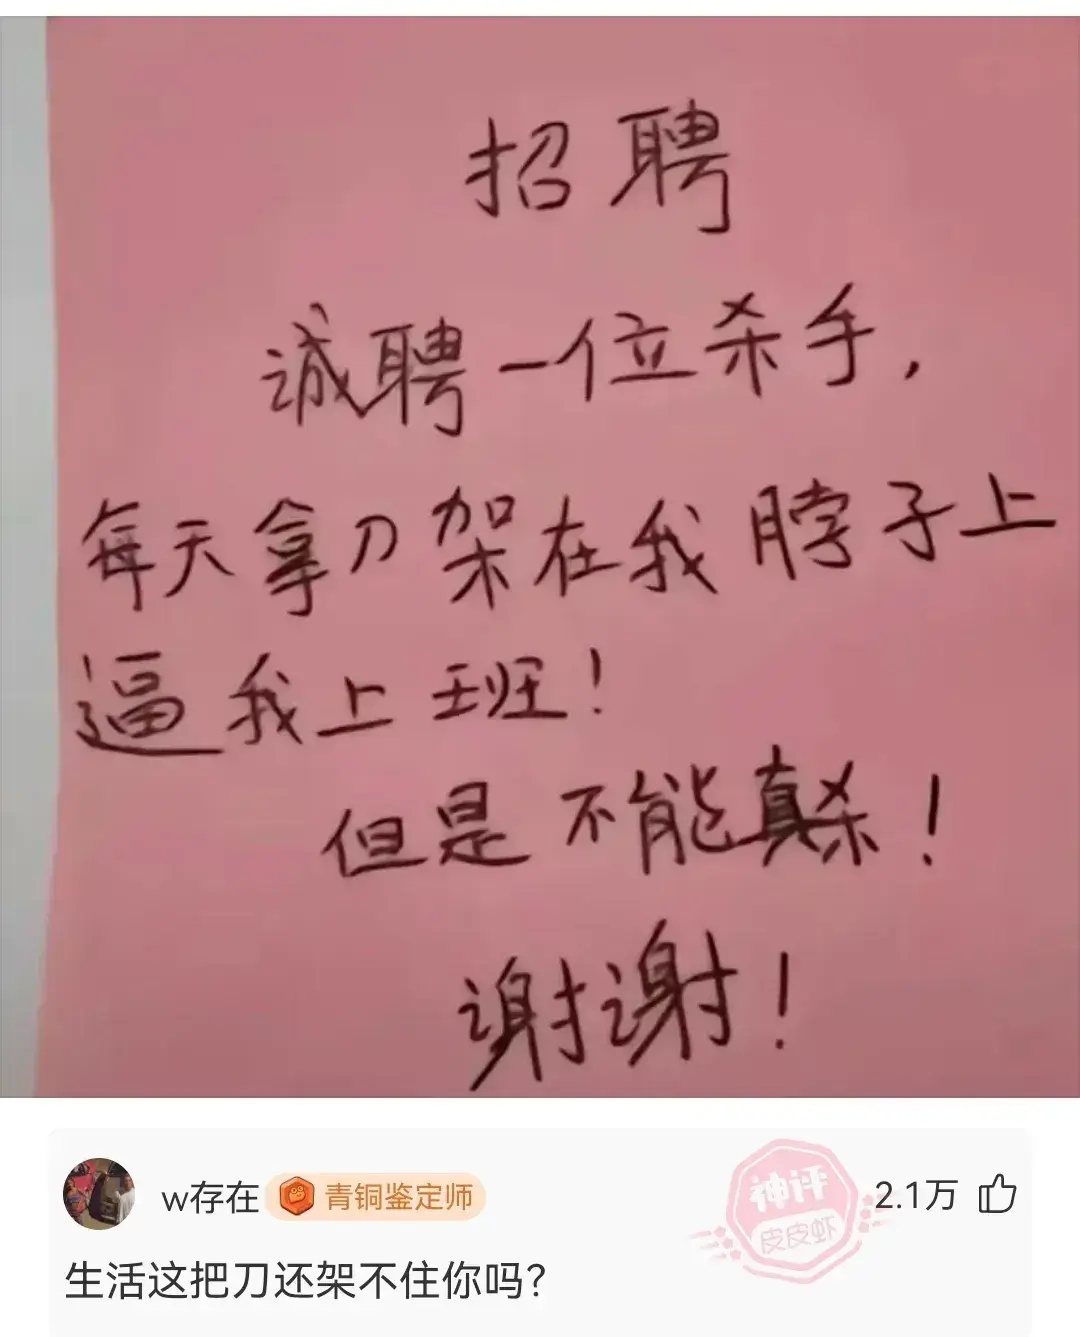 招聘
诚聘一位杀手，
每天拿刀架在我脖子上
逼我上班！
但是不能真杀！
谢谢！
w存在 青铜鉴定师 神评 皮皮虾 2.1万
生活这把刀还架不住你吗？